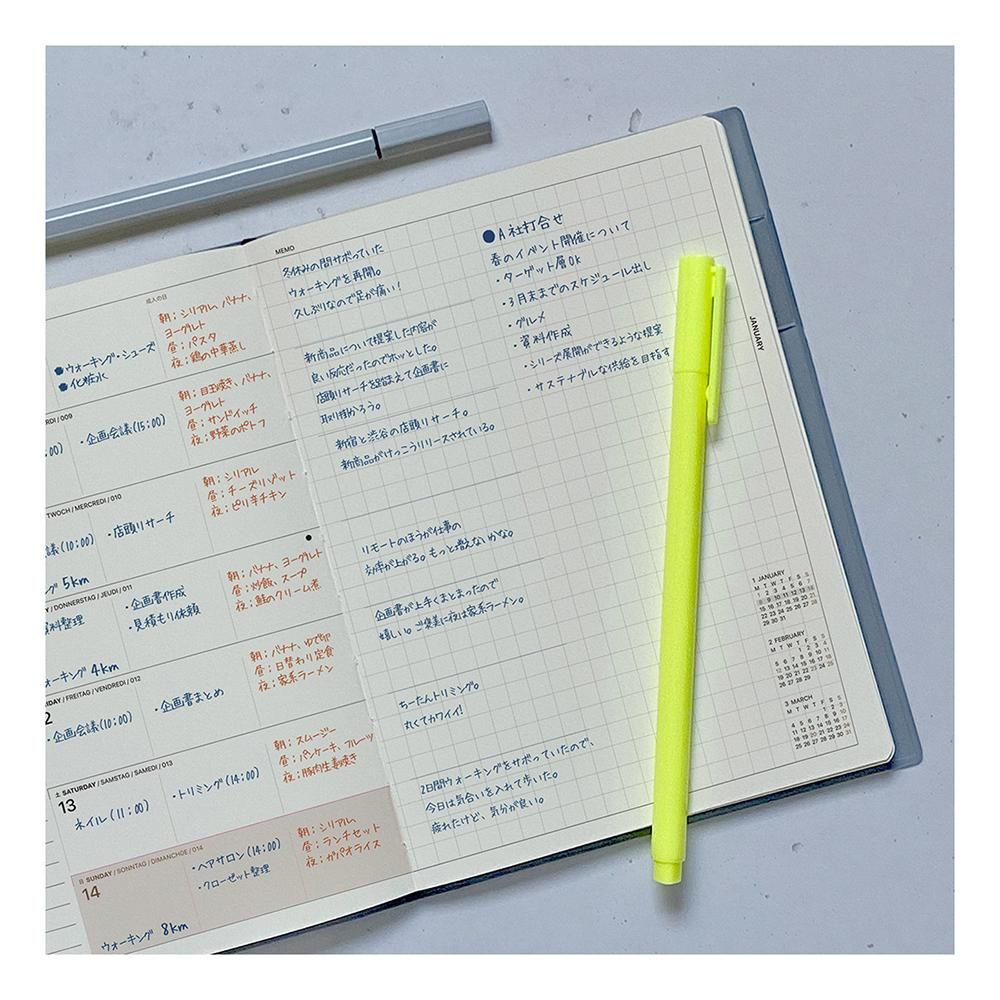 成人の日
● ウォーキング・シューズ
● 化粧水
朝：シリアル、バナナ、
ヨーグルト
昼：パスタ
夜：鶏の中華蒸し
RDI / 009
00)
・企画会議(15:00)
朝：目玉焼き、バナナ、
ヨーグルト
昼：サンドイッチ
夜：野菜のポトフ
TWOCH / MERCREDI / 010
議(10:00)
・店頭リサーチ
朝：シリアル
昼：チーズリゾット
夜：ピリ辛チキン
グ 5km
Y / DONNERSTAG / JEUDI / 011
料整理
・企画書作成
・見積もり依頼
朝：バナナ、ヨーグルト
昼：炒飯、スープ
夜：鮭のクリーム煮
ーキング 4km
IDAY / FREITAG / VENDREDI / 012
2
・企画会議(10:00)
・企画書まとめ
朝：バナナ、ゆで卵
昼：日替わり定食
夜：家系ラーメン
土 SATURDAY / SAMSTAG / SAMEDI / 013
13
ネイル(11:00)
・トリミング(14:00)
朝：スムージー
昼：パンケーキ、フルーツ
夜：豚肉生姜焼き
日 SUNDAY / SONNTAG / DIMANCHE / 014
14
・ヘアサロン(14:00)
・クローゼット整理
朝：シリアル
昼：ランチセット
夜：ガパオライス
ウォーキング 8km
MEMO
冬休みの間サボっていた
ウォーキングを再開。
久しぶりなので足が痛い！
新商品について提案した内容が
良い反応だったのでホッとした。
店頭リサーチを踏まえて企画書に
取り掛かろう。
新宿と渋谷の店頭リサーチ。
新商品がけっこうリリースされている。
リモートのほうが仕事の
効率が上がる。もっと増えないかな。
企画書が上手くまとまったので
嬉しい。ご褒美に夜は家系ラーメン。
ちーたんトリミング。
丸くてカワイイ！
2日間ウォーキングをサボっていたので、
今日は気合いを入れて歩いた。
疲れたけど、気分が良い。
● A社打合せ
春のイベント開催について
・ターゲット層OK
・3月末までのスケジュール出し
・グルメ
・資料作成
・シリーズ展開ができるような提案
・サステナブルな供給を目指す
JANUARY
1 JANUARY
M T W T F S S
1 2 3 4 5 6 7
8 9 10 11 12 13 14
15 16 17 18 19 20 21
22 23 24 25 26 27 28
29 30 31
2 FEBRUARY
M T W T F S S
1 2 3 4
5 6 7 8 9 10 11
12 13 14 15 16 17 18
19 20 21 22 23 24 25
26 27 28 29
3 MARCH
M T W T F S S
1 2 3
4 5 6 7 8 9 10
11 12 13 14 15 16 17
18 19 20 21 22 23 24
25 26 27 28 29 30 31